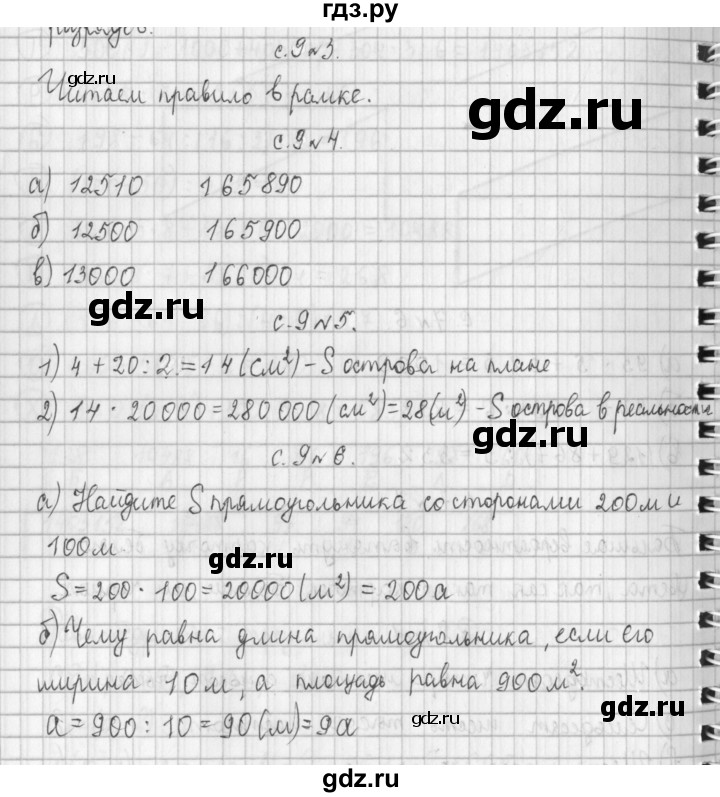 гдз.ру
разрядов.
с.9 №3.
gdz.ru
Читаем правило в рамке.
gdz.ru
с.9 №4.
gdz.ru
а) 12510 165890
б) 12500 165900
в) 13000 166000
gdz.ru
с.9 №5.
1) 4 + 20 : 2 = 14 (см²) – S острова на плане
2) 14 · 20000 = 280 000 (см²) = 28 (м²) – S острова в реальности
gdz.ru
с.9 №6.
а) Найдите S прямоугольника со сторонами 200м и
100м
gdz.ru
S = 200 · 100 = 20000 (м²) = 200а
б) Чему равна длина прямоугольника, если его
ширина 10м, а площадь равна 900м².
а = 900 : 10 = 90 (м) = 9а
gdz.ru
gdz.ru